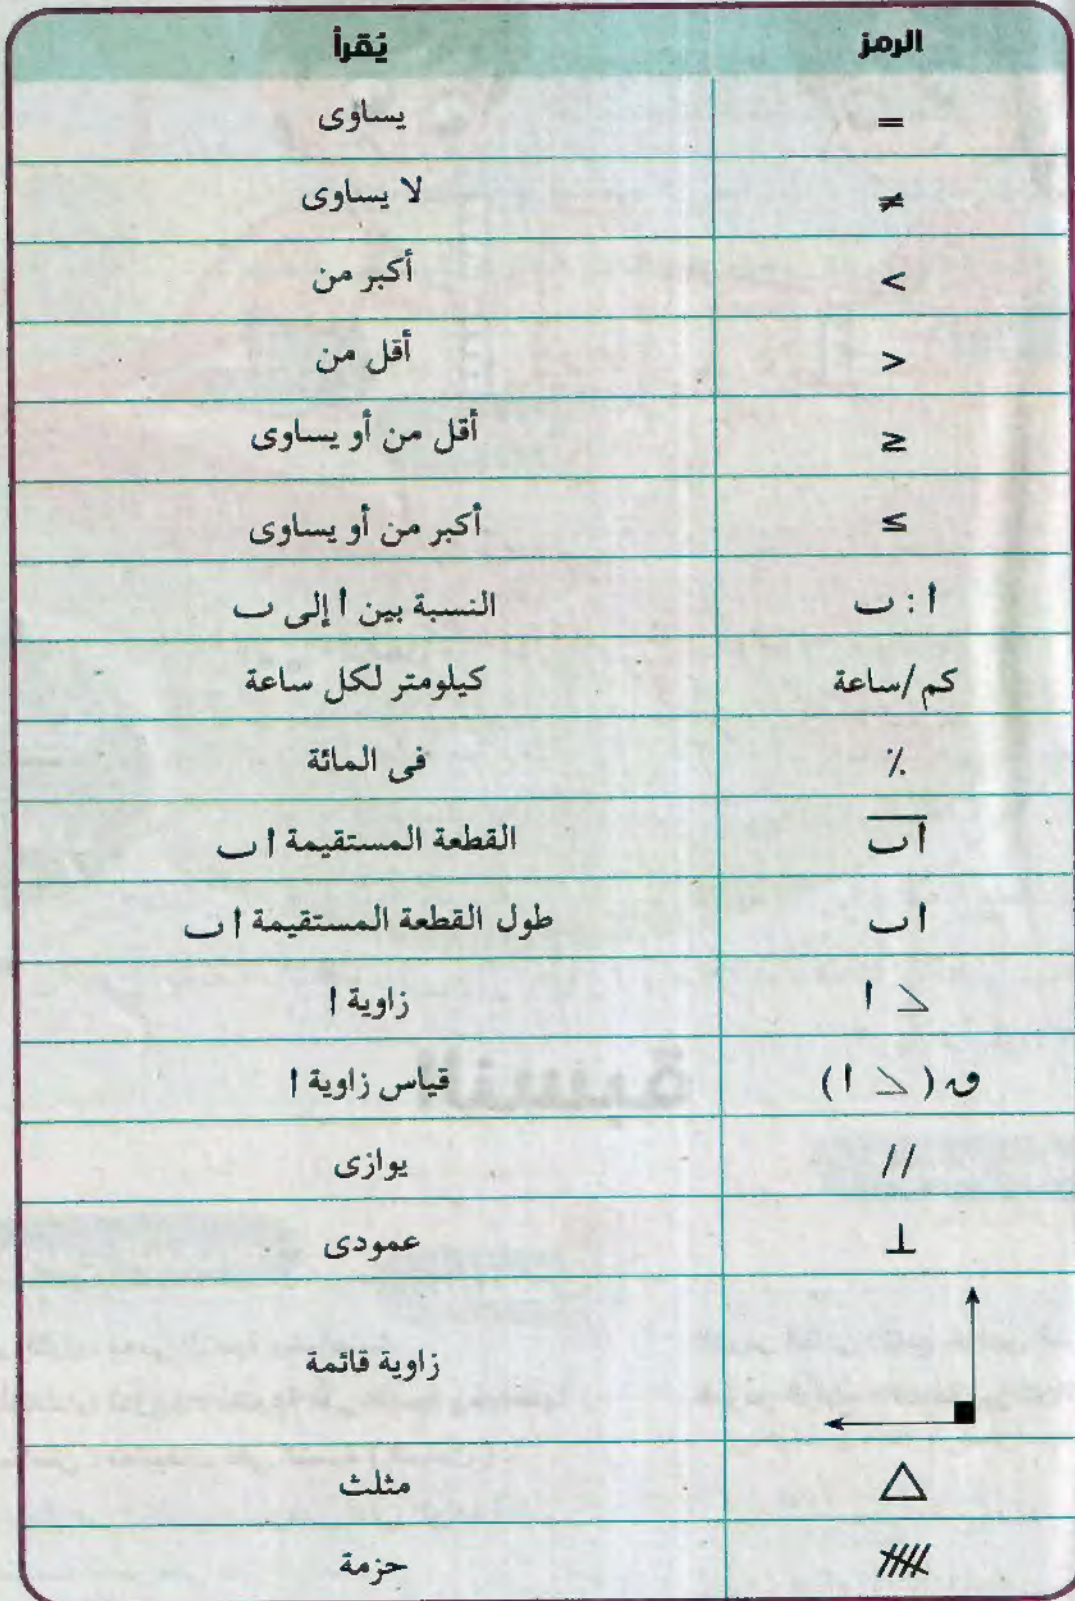 الرمز يُقرأ
= يساوى
≠ لا يساوى
< أكبر من
> أقل من
≥ أقل من أو يساوى
≤ أكبر من أو يساوى
ا : ب النسبة بين ا إلى ب
كم/ساعة كيلومتر لكل ساعة
٪ فى المائة
ا‾ب‾ القطعة المستقيمة ا ب
ا ب طول القطعة المستقيمة ا ب
ا ∠ زاوية ا
ق (∠ ا) قياس زاوية ا
// يوازى
⊥ عمودى
زاوية قائمة
△ مثلث
حزمة